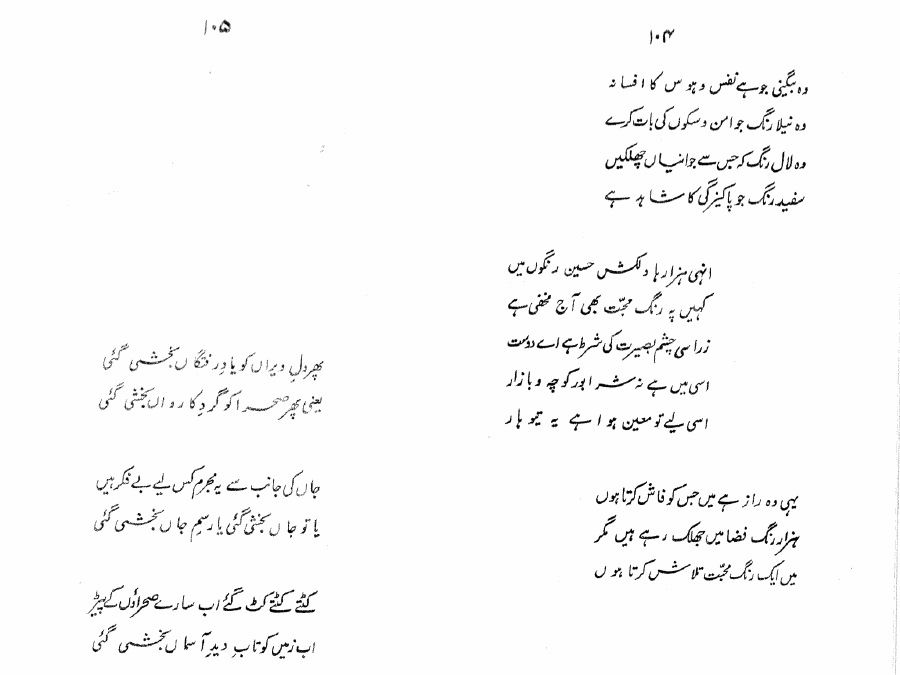 ۱۰۴
وہ بیگنی جو ہے نفس و ہوس کا افسانہ
وہ نیلا رنگ جو امن و سکوں کی بات کرے
وہ لال رنگ کہ جس سے جوانیاں چھلکیں
سفید رنگ جو پاکیزگی کا شاہد ہے
انہی ہزارہا دلکش حسین رنگوں میں
کہیں پہ رنگ محبّت بھی آج مخفی ہے
زرا سی چشم بصیرت کی شرط ہے اے دوست
اسی میں ہے نہ شرابور کوچہ و بازار
اسی لیے تو معین ہوا ہے یہ تیوہار
یہی وہ راز ہے میں جس کو فاش کرتا ہوں
ہزار رنگ فضا میں جھلک رہے ہیں مگر
میں ایک رنگ محبّت تلاش کرتا ہوں
۱۰۵
پھر دلِ ویراں کو یادِ رفتگاں بخشی گئی
یعنی پھر صحرا کو گردِ کارواں بخشی گئی
جاں کی جانب سے یہ مجرم کس لیے بے فکر ہیں
یا تو جاں بخشی گئی یا رسمِ جاں بخشی گئی
کٹتے کٹتے کٹ گئے اب سارے صحراؤں کے پیڑ
اب زمیں کو تابِ دیدِ آسماں بخشی گئی